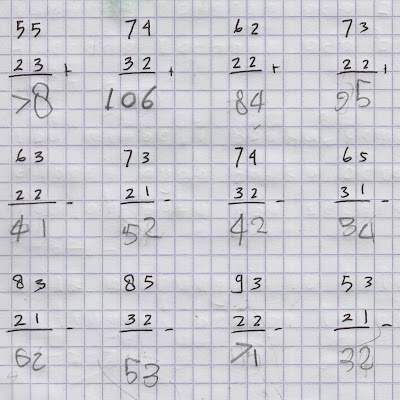 55 74 62 73
23 + 32 + 22 + 22 +
78 106 84 95
63 73 74 65
22 - 21 - 32 - 31 -
41 52 42 34
83 85 93 53
21 - 32 - 22 - 21 -
62 53 71 32